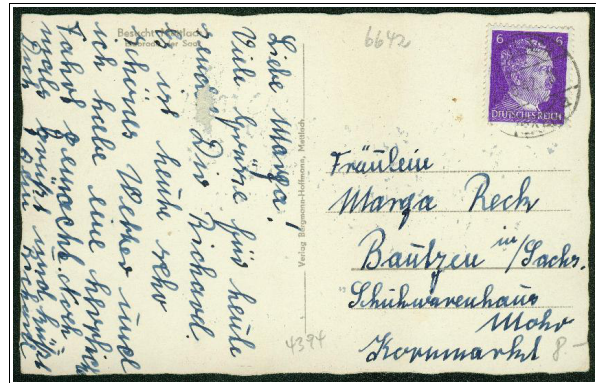 Besucht Mettlach
an der Saar
6642
Liebe Marga!
Viele Grüße für heute
sendet Dir Richard.
Es ist heute sehr
schönes Wetter und
ich habe eine herrliche
Fahrt gemacht. Noch
mals grüßt und küßt
Dich Dein Richard
Verlag Bergmann-Hoffmann, Mettlach
6 6
DEUTSCHES REICH
Fräulein
Marga Reck
Bautzen in/Sachs.
Schuhwarenhaus
Mohr
Kornmarkt
4394
8-